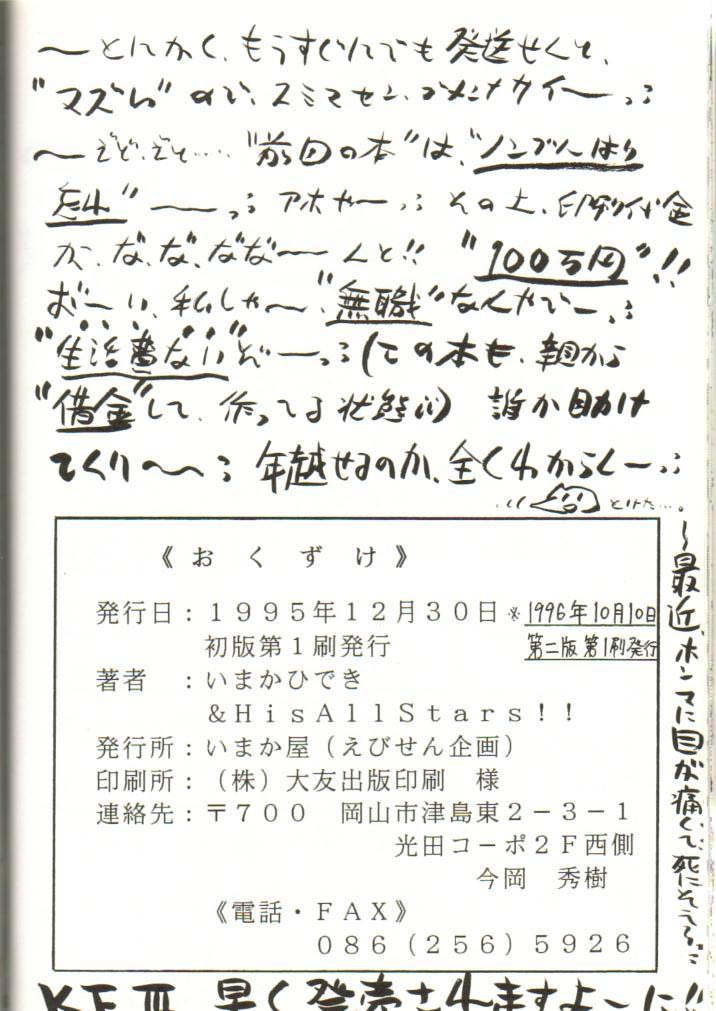 〜とにかく、もうすぐにでも発送せんと、
"マズい"ので、スミマセン、ゴメンナサイ〜っ;
〜ぞぞ、ぞぞ……"前回の本"は、"ノンブルはり
忘れ"〜っ; アホヤ〜っ; その上、印刷代金
が、な、な、なな〜んと!! "100万円"!!
お〜い、私しゃ〜、"無職"なんやで〜っ;
"生活費ない"ぞ〜っ;(この本も、親から
"借金"して、作ってる状態;;) 誰か助け
てくり〜〜; 年越せるのか、全くわからん〜っ;
とけた…。
《おくずけ》
発行日：1995年12月30日※1996年10月10日
初版第1刷発行 第二版第1刷発行
著者　：いまかひでき
＆HisAllStars！！
発行所：いまか屋（えびせん企画）
印刷所：（株）大友出版印刷　様
連絡先：〒700　岡山市津島東2－3－1
光田コーポ2F西側
今岡　秀樹
《電話・FAX》
086（256）5926
〜最近、ホンマに目が痛くて、死にそう〜っ;
KFⅢ 早く発売されますよーに!!